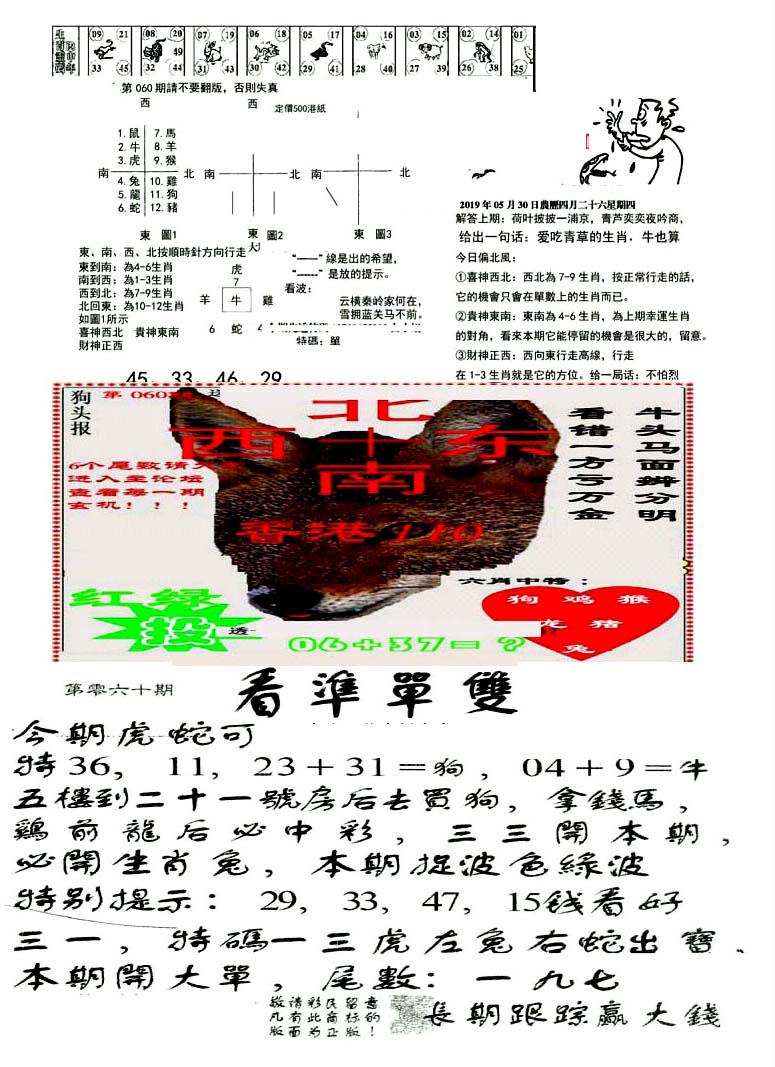 09 21 08 20 07 19 06 18 05 17 04 16 03 15 02 14 01
33 45 32 44 49 31 43 30 42 29 41 28 40 27 39 26 38 25
第 060 期請不要翻版，否則失真
西 西 定價500港紙
1. 鼠 7. 馬
2. 牛 8. 羊
3. 虎 9. 猴
南 北 南 北 南 北
4. 兔 10. 雞
5. 龍 11. 狗
6. 蛇 12. 豬
東 圖1 東 圖2 東 圖3
東、南、西、北按順時針方向行走
東到南：為4-6生肖
南到西：為1-3生肖
西到北：為7-9生肖
北回東：為10-12生肖
如圖1所示
喜神西北 貴神東南
財神正西
虎
7
羊 牛 雞
6 蛇 4
“——” 線是出的希望，
“-----” 是放的提示。
看波：
云橫秦岭家何在，
雪拥蓝关马不前。
特碼：單
45 33 46 29
2019 年 05 月 30 日農曆四月二十六星期四
解答上期：荷叶披披一浦京，青芦奕奕夜吟商，
给出一句话：爱吃青草的生肖，牛也算
今日偏北風：
①喜神西北：西北為 7-9 生肖，按正常行走的話，
它的機會只會在單數上的生肖而已。
②貴神東南：東南為 4-6 生肖，為上期幸運生肖
的對角，看來本期它能停留的機會是很大的，留意。
③財神正西：西向東行走高線，行走
在 1-3 生肖就是它的方位。给一局话：不怕烈
狗头报
第 060
北
西 十 东
南
香港 110
6个尾数请
进入至伦坛
查看每一期
玄机！！！
牛头马面辨分明
看错一方亏万金
六肖中特：
狗 鸡 猴
龙 猪
兔
红 绿
投
透
06+37=?
第零六十期
看準單雙
今期虎蛇可
特36, 11, 23＋31＝狗, 04＋9＝牛
五樓到二十一號房后去買狗，拿錢馬，
鷄前龍后必中彩，三三開本期，
必開生肖兔，本期捉波色綠波
特别提示： 29, 33, 47, 15钱看好
三一，特碼一三虎左兔右蛇出寶、
本期開大單，尾數：一九七
敬请彩民留意
凡有此商标的
版面为正版！
長期跟踪贏大錢